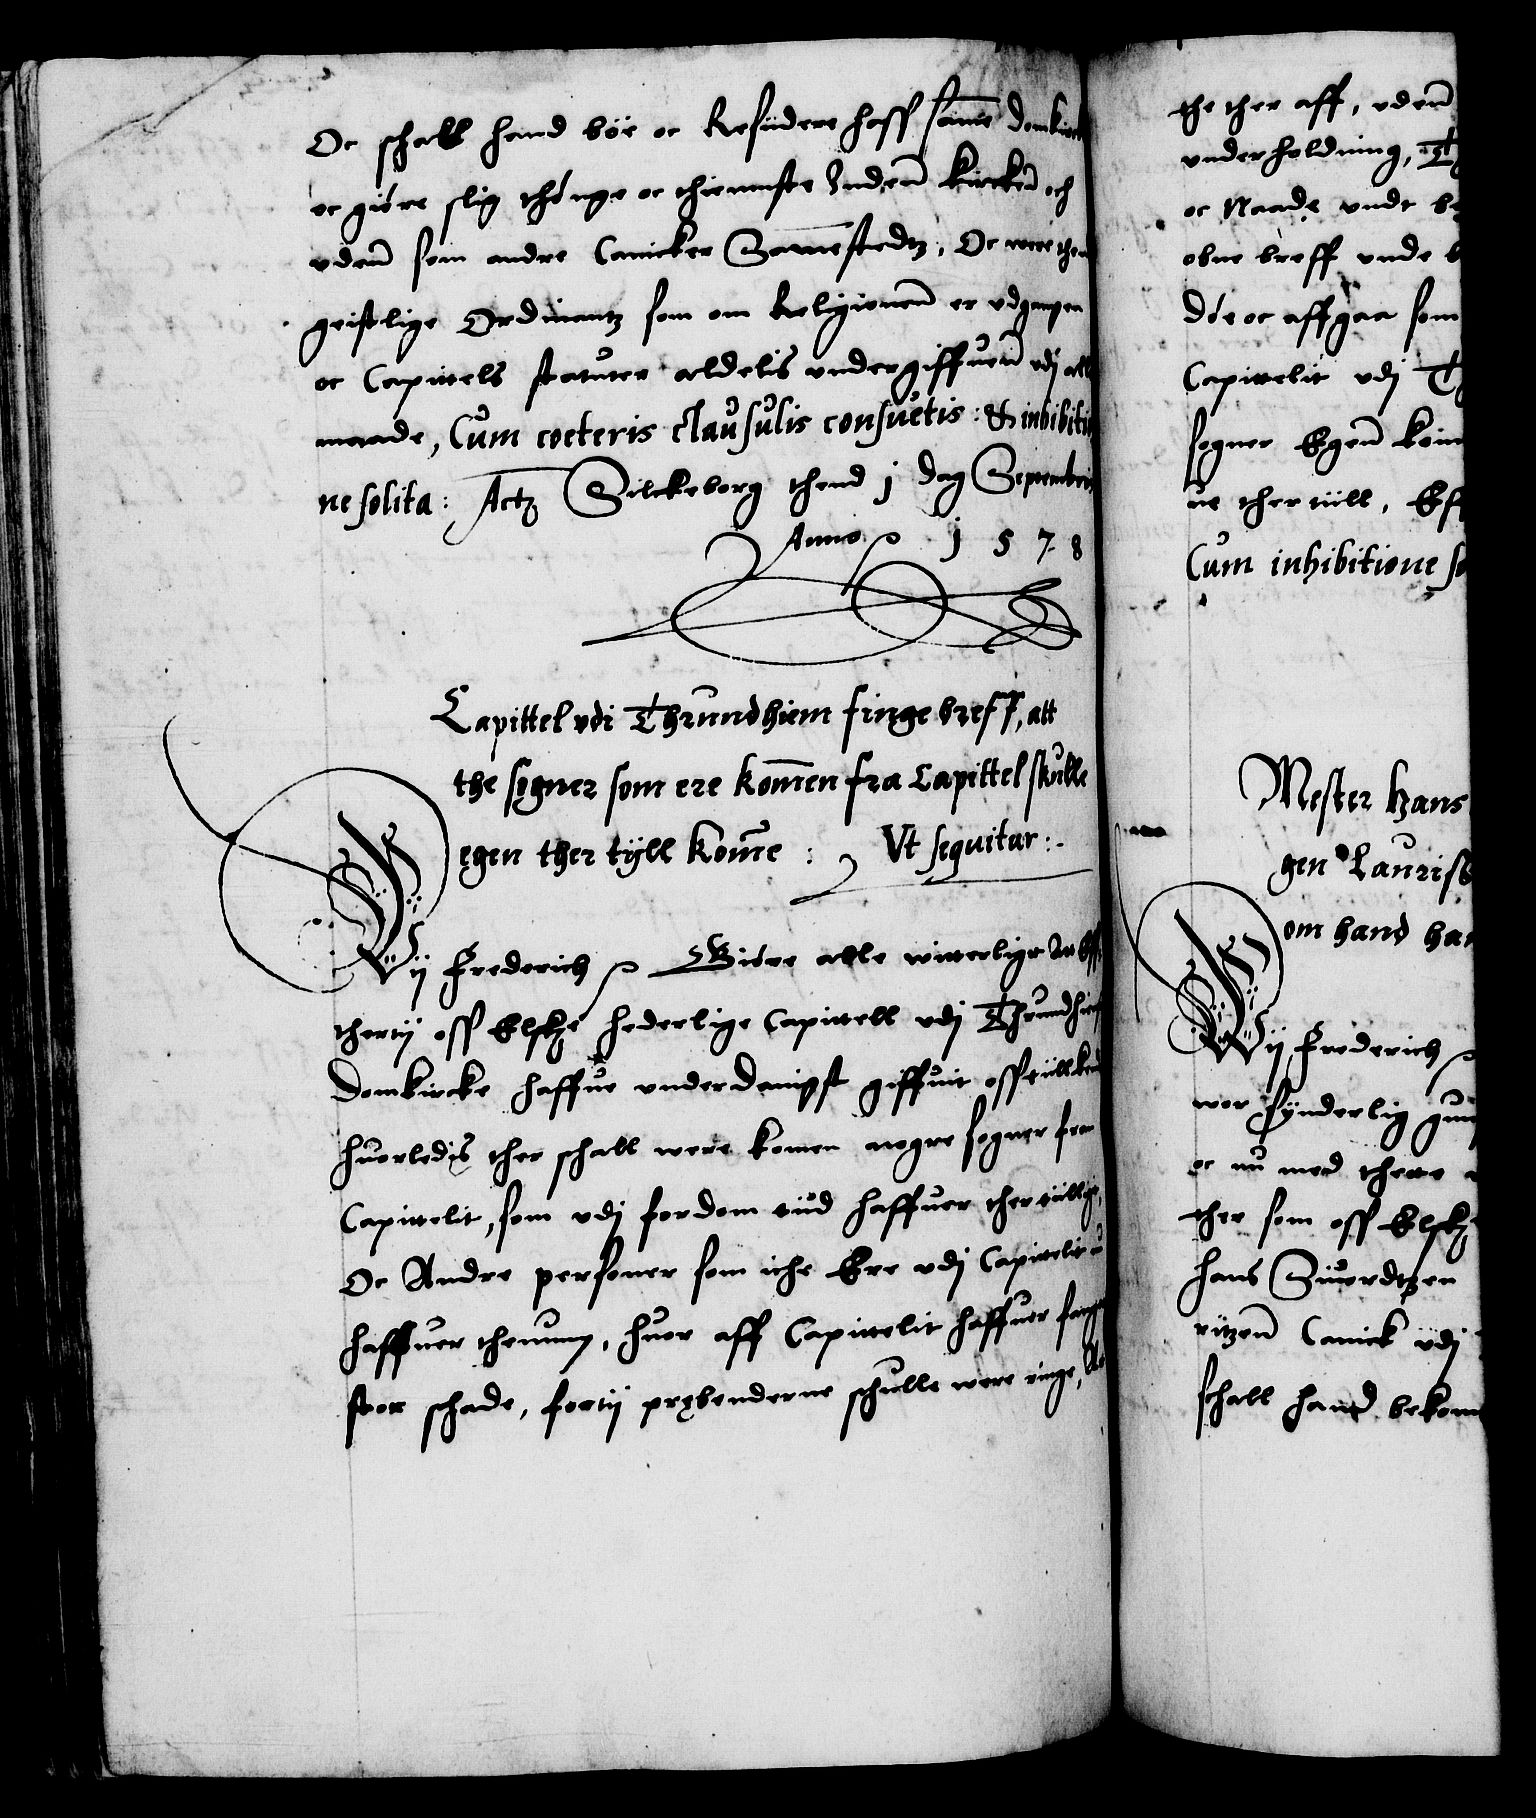 Oc schall hand bøe oc Residere hoss samme domkirck
oc giøre slig thønge oc thiennste Inden kircken och
uden som andre Canicker Sammestedtz, Oc were then
geistlige Ordinantz som om Religionen er udgangen
oc Capittels statuter aldelis undergiffuen udj all
maade, Cum coeteris clausulis consuetis: & inhibitio
ne solita: Actz Silckeborg thend j dag Septembris
Anno 1578
Capittel udi Thrundhiem finge breff, att
the sogner som ere kommen fra Capittel skulle
egen ther tijll komme: Vt sequitur:
Wij Frederich Giøre alle witterligt At eff
thertij oss Elskz hederlige Capittell udj Thrundhiem
domkircke haffue underdanigst giffuit oss tiilkend
huorledis ther schall were komen nogre sogner fran
Capittelit, som udj fordom tiid haffuer ther tiillig
Oc Andre personer som iche Ere udj Capittelit
haffuer thennum, huor aff Capittelit haffuer fange
stor schade, fortij prębenderne schulle were ringe, At
the ther aff, uden
underholdning, T
oc Naade undt be
obne breff unde
døe oc affgaa som
Capittelit udj T
sogner Egen kom
ne ther tiill, Eff
Cum inhibitione so
Mester Hans
gen Lauris
om hand ha
Wij Frederich
wor synderlig gun
oc nu med thette
ther som oss Elskz
Hans Siuerdtzen
ritzen Canick udj
schall hand bekom